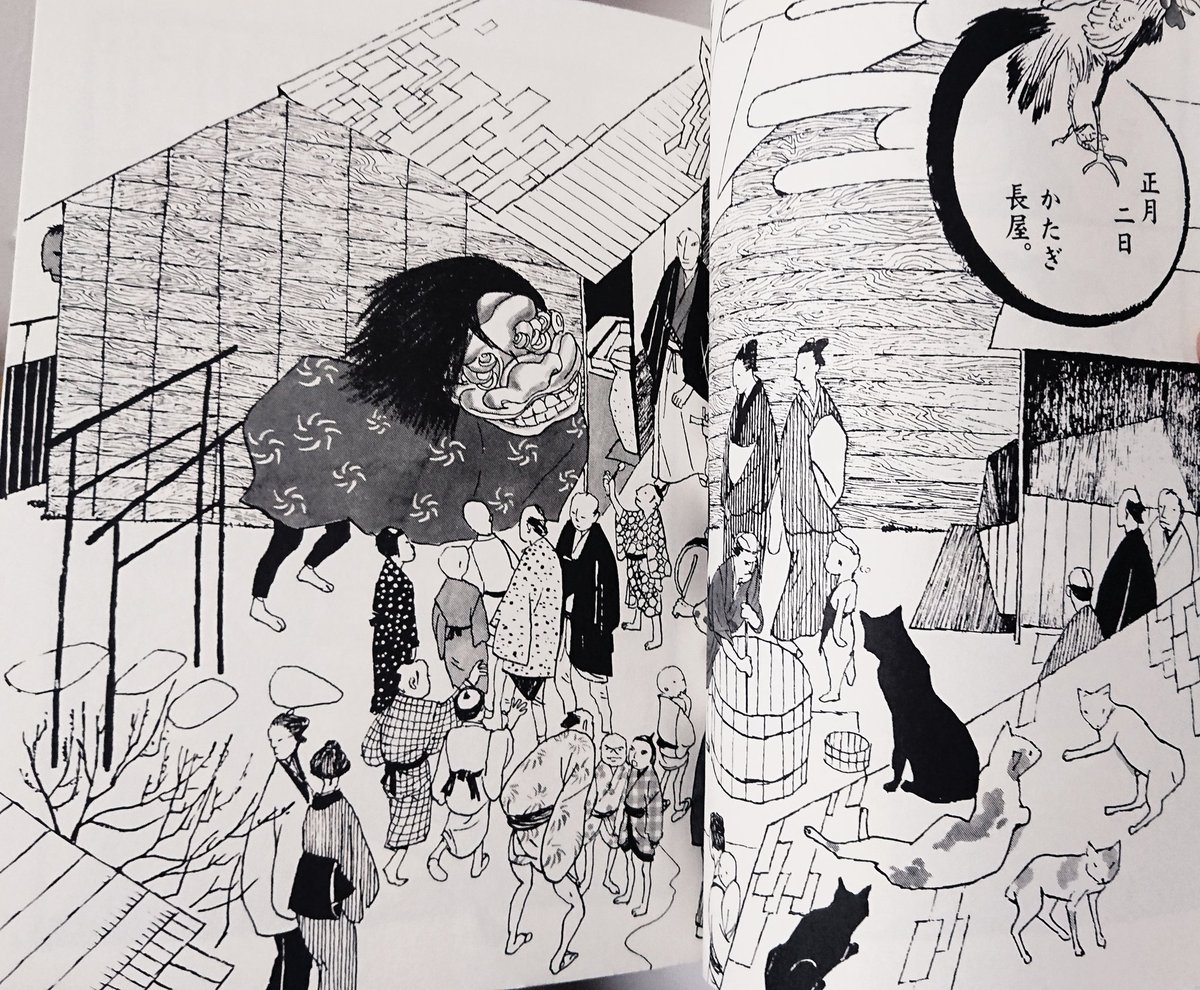 正月
二日
かたぎ
長屋。